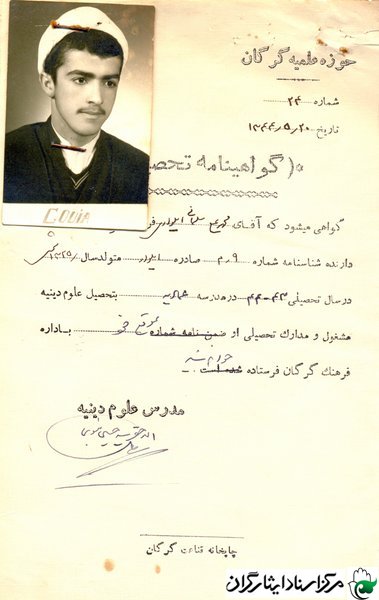 حوزه علمیه گرگان
شماره ۲۴
تاریخ ۱۳۴۴/۵/۲۰
(گواهینامه تحصی
COUIA
گواهی میشود که آقای ایلواری فر
دارنده شناسنامه شماره ۹ صادره متولد سال ۱۳۲۵
در سال تحصیلی ۴۳-۴۴ در مدرسه بتحصیل علوم دینیه
مشغول و مدارک تحصیلی او ضمن نامه شماره باداره
فرهنگ گرگان فرستاده خواهد شد شده است.
مدرس علوم دینیه
چاپخانه قناعت گرگان
مرکز اسناد ایثارگران